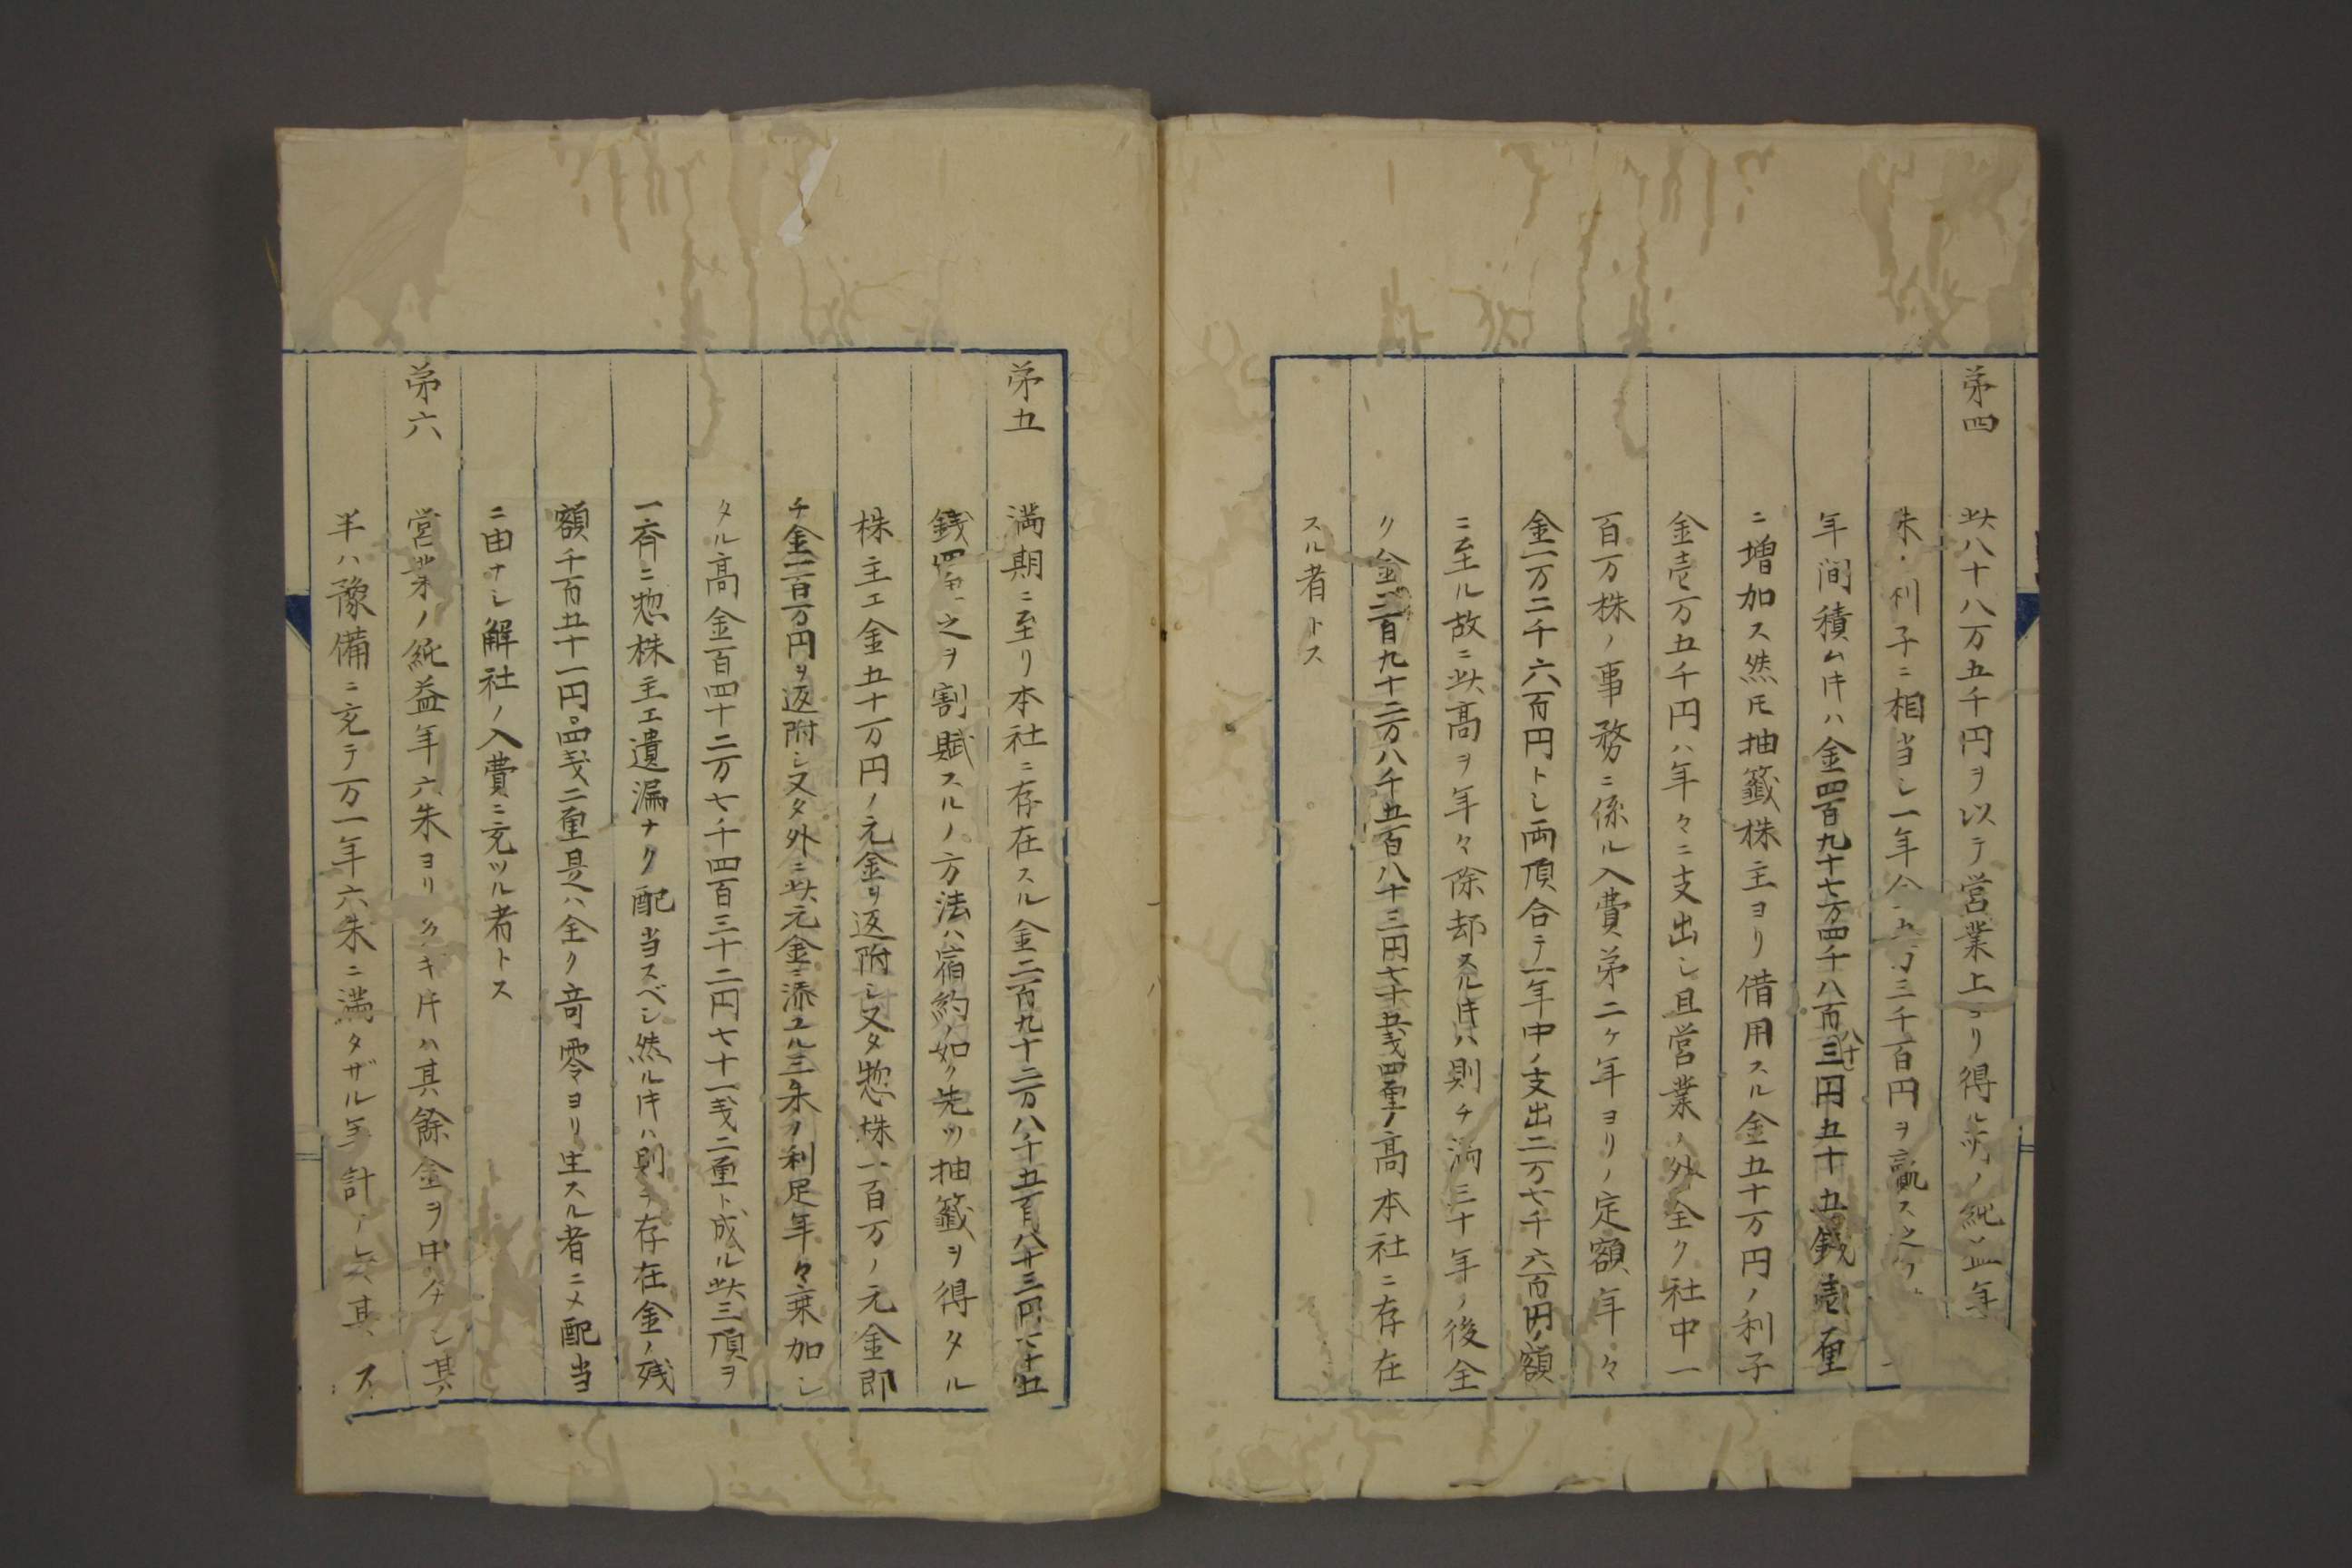 第四　此八十八万五千円ヲ以テ営業上ヨリ得ル所ノ純益年
朱ノ利子ニ相当シ一年金五万三千百円ヲ贏ス之ヲ
年間積ムキハ金四百九十七万四千八百八十三円五十五銭壱厘
ニ増加ス然ドモ抽籤株主ヨリ借用スル金五十万円ノ利子
金壱万五千円ハ年々ニ支出シ且営業ノ外全ク社中一
百万株ノ事務ニ係ル入費第二ヶ年ヨリノ定額年々
金一万二千六百円トシ両項合テ一年中ノ支出二万七千六百円ノ額
ニ至ル故ニ此高ヲ年々除却スルキハ則チ満三十年ノ後全
ク金二百九十二万八千五百八十三円七十五戔四厘ノ高本社ニ存在
スル者トス
第五　満期ニ至リ本社ニ存在スル金二百九十二万八千五百八十三円七十五
銭四厘之ヲ割賦スルノ方法ハ宿約ノ如ク先ツ抽籤ヲ得タル
株主エ金五十万円ノ元金ヲ返附シ又タ惣株一百万ノ元金即
チ金一百万円ヲ返附シ又タ外ニ此元金ニ添ユル三朱ノ利足年々乗加シ
タル高金百四十二万七千四百三十二円七十一戔二厘ト成ル此三項ヲ
一斉ニ惣株主エ遺漏ナク配当スベシ然ルキハ則チ存在金ノ残
額千百五十一円〇四戔二厘是ハ全ク奇零ヨリ生スル者ニメ配当
ニ由ナシ解社ノ入費ニ充ツル者トス
第六　営業ノ純益年六朱ヨリ多キキハ其餘金ヲ中分シ其
半ハ豫備ニ充テ万一年六朱ニ満タザル年計ノ其ス